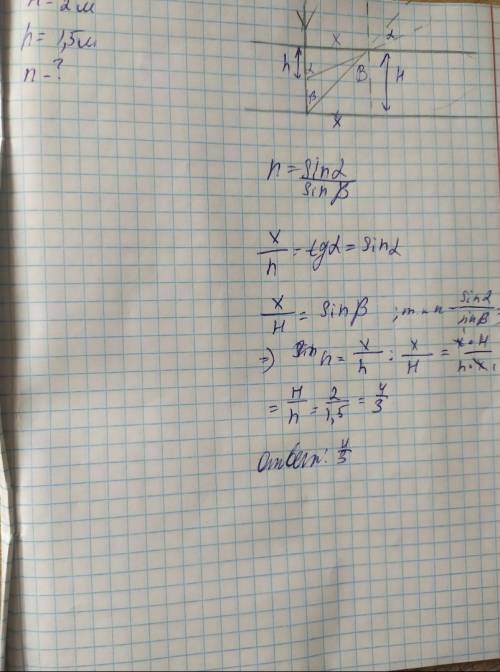 H - 2 м
h = 1,5 м
n - ?
x
α
h
α
B
H
β
x
n = sinα / sinβ
x / h = tgα = sinα
x / H = sinβ ; т.к n = sinα / sinβ
=> n = x / h : x / H = x · H / h · x
= H / h = 2 / 1,5 = 4 / 3
Ответ: 4 / 3